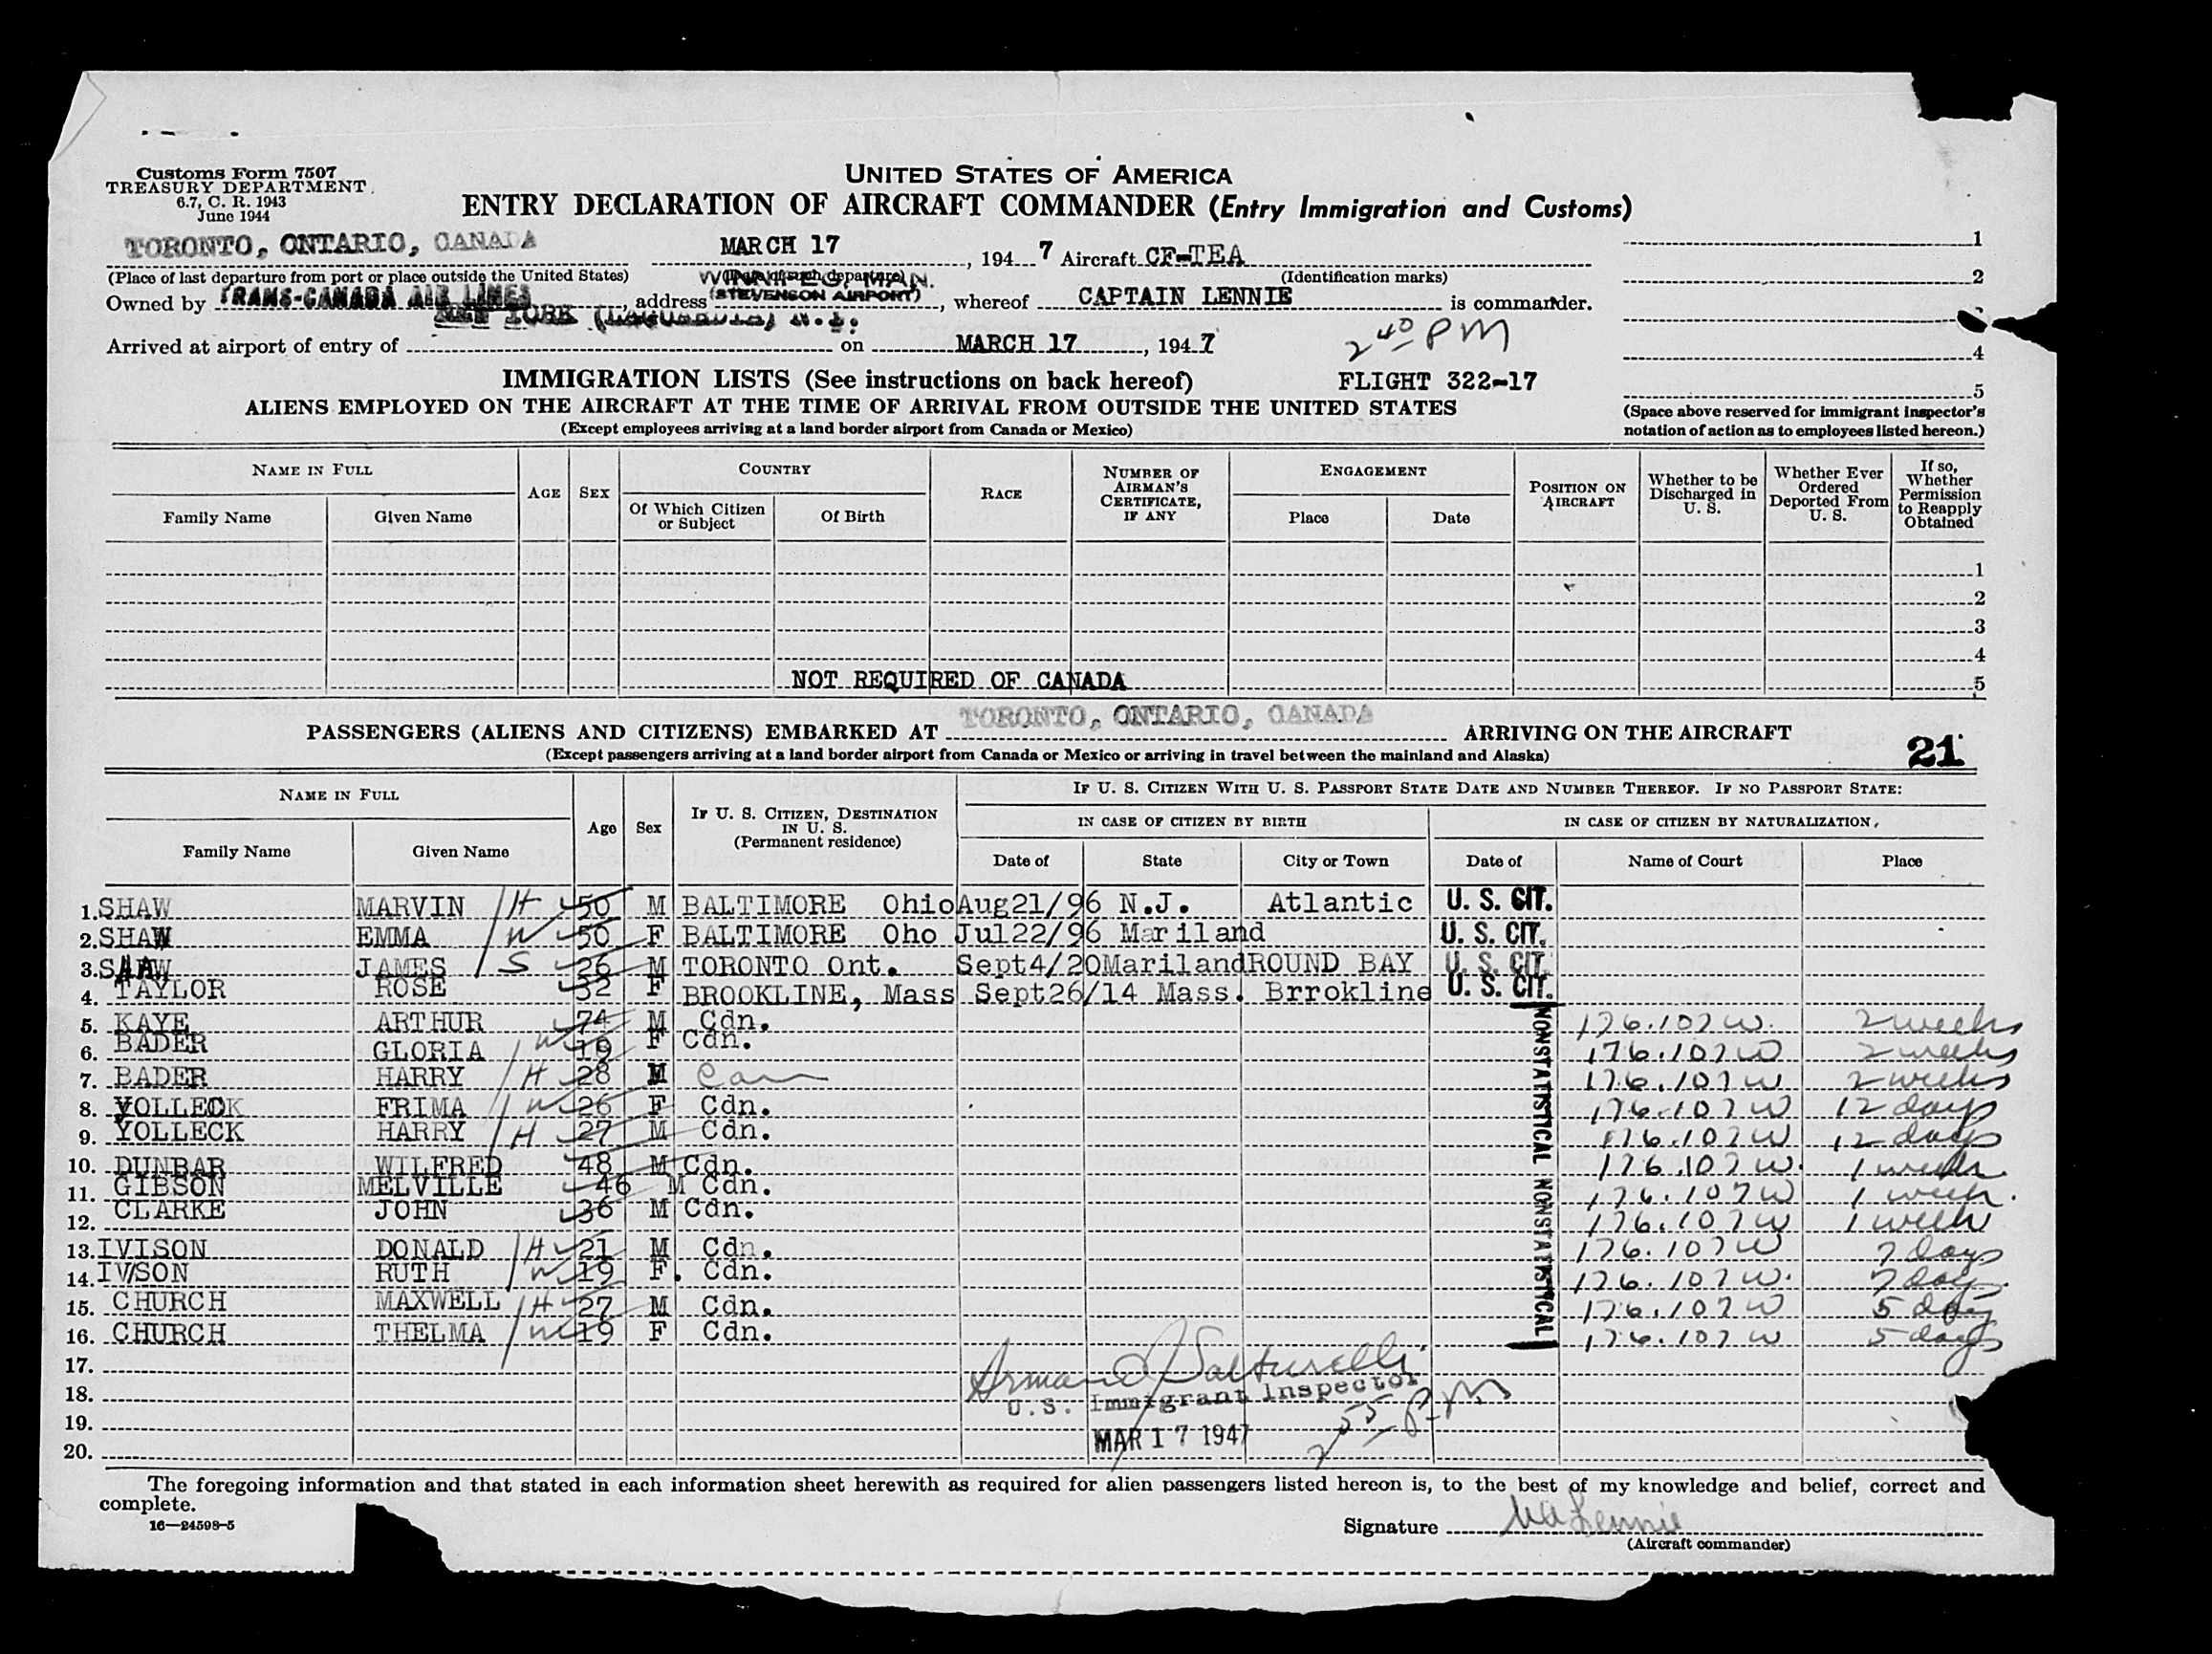 Customs Form 7507
TREASURY DEPARTMENT
6.7, C. R. 1943
June 1944
UNITED STATES OF AMERICA
ENTRY DECLARATION OF AIRCRAFT COMMANDER (Entry Immigration and Customs)
TORONTO, ONTARIO, CANADA MARCH 17, 1947 Aircraft CF-TEA
(Place of last departure from port or place outside the United States) (Identification marks)
WINNIPEG, MAN.
Owned by TRANS-CANADA AIR LINES, address (STEVENSON AIRPORT), whereof CAPTAIN LENNIE is commander.
NEW YORK (LAGUARDIA) N.Y.
Arrived at airport of entry of on MARCH 17, 1947
2 40 PM
1
2
4
5
IMMIGRATION LISTS (See instructions on back hereof) FLIGHT 322-17
ALIENS EMPLOYED ON THE AIRCRAFT AT THE TIME OF ARRIVAL FROM OUTSIDE THE UNITED STATES
(Except employees arriving at a land border airport from Canada or Mexico)
(Space above reserved for immigrant inspector's
notation of action as to employees listed hereon.)
NAME IN FULL
Family Name Given Name
AGE SEX
COUNTRY
Of Which Citizen or Subject Of Birth
RACE
NUMBER OF AIRMAN'S CERTIFICATE, IF ANY
ENGAGEMENT
Place Date
POSITION ON AIRCRAFT
Whether to be Discharged in U. S.
Whether Ever Ordered Deported From U. S.
If so, Whether Permission to Reapply Obtained
1
2
3
4
NOT REQUIRED OF CANADA 5
PASSENGERS (ALIENS AND CITIZENS) EMBARKED AT TORONTO, ONTARIO, CANADA ARRIVING ON THE AIRCRAFT
(Except passengers arriving at a land border airport from Canada or Mexico or arriving in travel between the mainland and Alaska)
21
NAME IN FULL
Family Name Given Name
Age Sex
IF U. S. CITIZEN, DESTINATION IN U. S. (Permanent residence)
IF U. S. CITIZEN WITH U. S. PASSPORT STATE DATE AND NUMBER THEREOF. IF NO PASSPORT STATE:
IN CASE OF CITIZEN BY BIRTH
IN CASE OF CITIZEN BY NATURALIZATION,
Date of State City or Town Date of Name of Court Place
1. SHAW MARVIN H 50 M BALTIMORE Ohio Aug21/96 N.J. Atlantic U. S. CIT.
2. SHAW EMMA W 50 F BALTIMORE Oho Jul22/96 Mariland U. S. CIT.
3. SHAW JAMES S 26 M TORONTO Ont. Sept4/20 Mariland ROUND BAY U. S. CIT.
4. TAYLOR ROSE 32 F BROOKLINE, Mass Sept26/14 Mass. Brrokline U. S. CIT.
5. KAYE ARTHUR 74 M Cdn. 176.107W. 2 weeks
6. BADER GLORIA W 19 F Cdn. 176.107W 2 weeks
7. BADER HARRY H 28 M Can 176.107W 2 weeks
8. YOLLECK FRIMA W 26 F Cdn. 176.107W 12 days
9. YOLLECK HARRY H 27 M Cdn. 176.107W 12 days
10. DUNBAR WILFRED 48 M Cdn. 176.107W. 1 week.
11. GIBSON MELVILLE 46 M Cdn. 176.107W 1 week.
12. CLARKE JOHN 36 M Cdn. 176.107W 1 week
13. IVISON DONALD H 21 M Cdn. 176.107W 7 days
14. IVISON RUTH W 19 F. Cdn. 176.107W. 7 days.
15. CHURCH MAXWELL H 27 M Cdn. 176.107W 5 days
16. CHURCH THELMA W 19 F Cdn. 176.107W 5 days
NONSTATISTICAL NONSTATISTICAL
17.
18.
19.
20.
Armand
U.S. Immigrant Inspector
MAR 17 1947
2 55 P.M
The foregoing information and that stated in each information sheet herewith as required for alien passengers listed hereon is, to the best of my knowledge and belief, correct and
complete.
16—24598-5
Signature Lennie
(Aircraft commander)